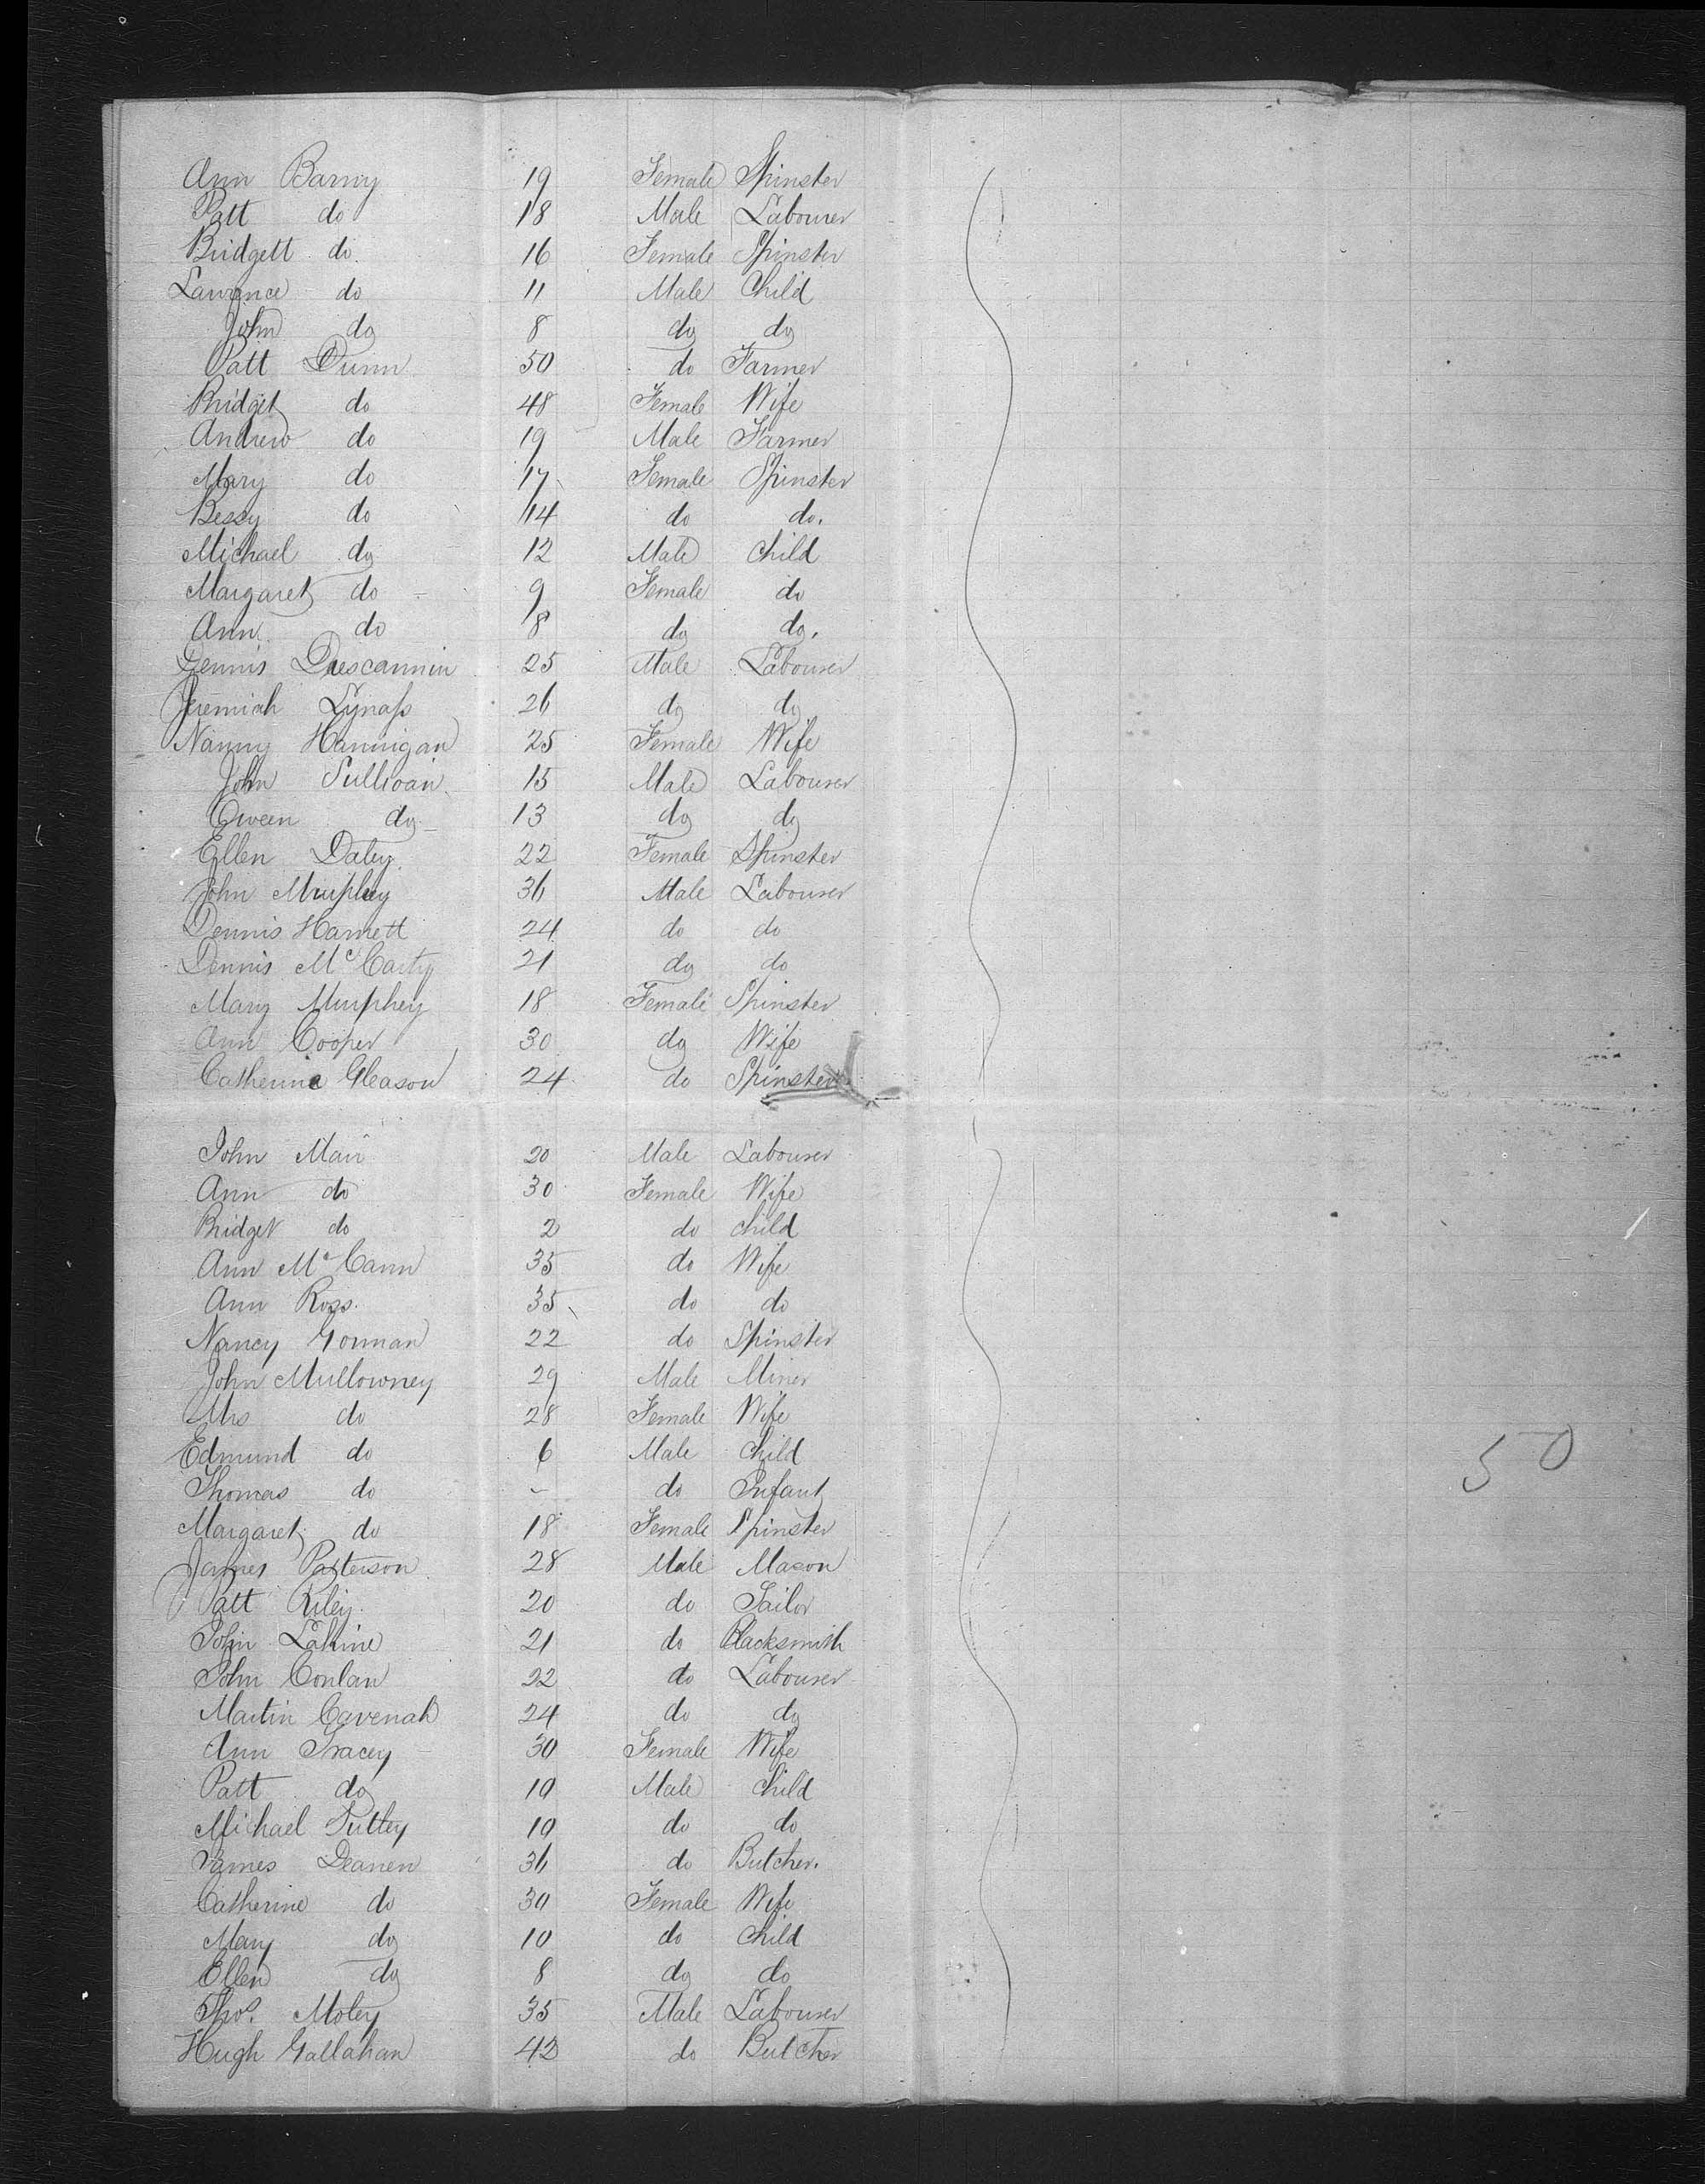 Ann Barny 19 Female Spinster
Patt do 18 Male Labourer
Bridgett do. 16 Female Spinster
Lawrence do 11 Male Child
John do 8 do do
Patt Dunn 50 do Farmer
Bridget do 48 Female Wife
Andrew do 19 Male Farmer
Mary do 17 Female Spinster
Bessy do 14 do do.
Michael do 12 Male Child
Margaret do 9 Female do
Ann do 8 do do.
Dennis 25 Male Labourer
Jeremiah Lynass 26 do do
Nanny Hannigan 25 Female Wife
John Sullivan 15 Male Labourer
Owen do 13 do do
Ellen Daley 22 Female Spinster
John Murphey 36 Male Labourer
Dennis Harnett 24 do do
Dennis McCarty 21 do do
Mary Murphey 18 Female Spinster
Ann Cooper 30 do Wife
Catherine Gleason 24 do Spinster
John Mair 20 Male Labourer
Ann do 30 Female Wife
Bridget do 2 do child
Ann McCann 35 do Wife
Ann Ross. 35 do do
Nancy Gorman 22 do Spinster
John Mullowney 29 Male Miner
Mrs do 28 Female Wife
Edmund do 6 Male child
Thomas do - do Infant
Margaret do 18 Female Spinster
James Patterson 28 Male Mason
Patt Riley 20 do Tailor
John Lakine 21 do Blacksmith
John Conlan 22 do Labourer
Martin Cavenah 24 do do
Ann Tracey 30 Female Wife
Patt do 10 Male child
Michael 10 do do
James Deanen 36 do Butcher.
Catherine do 30 Female Wife
Mary do 10 do child
Ellen do 8 do do
Thos. Moley 35 Male Labourer
Hugh Gallahan 42 do Butcher
50